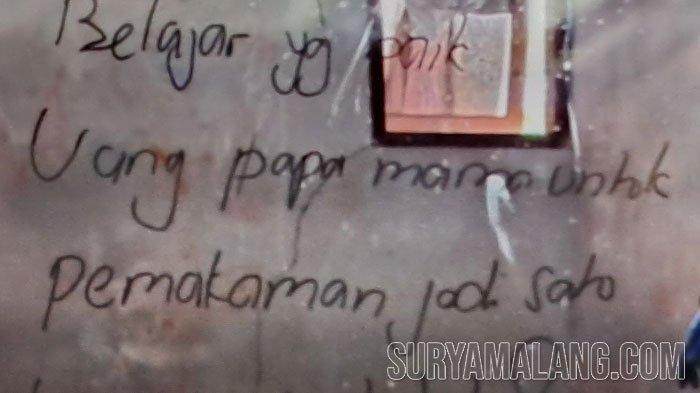 Belajar yg baik
Uang papa mama untuk
pemakaman jadi satu
SURYAMALANG.COM